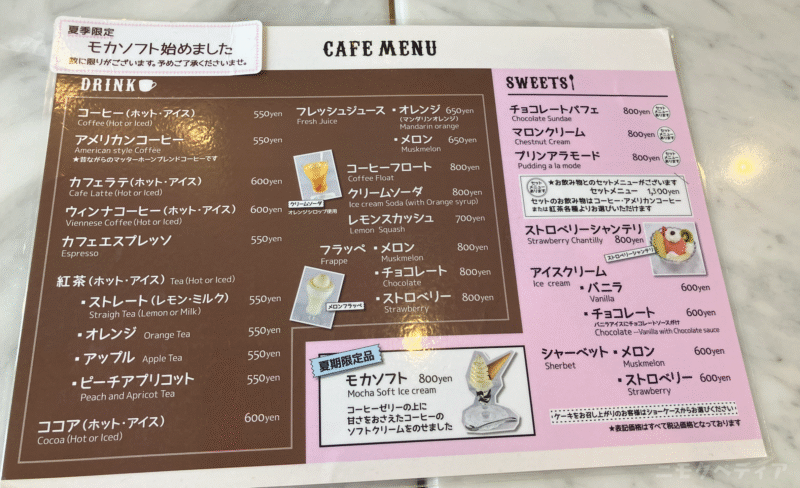 夏季限定
モカソフト始めました
数に限りがございます。予めご了承くださいませ。
CAFE MENU
DRINK
コーヒー(ホット・アイス) 550yen
Coffee (Hot or Iced)
アメリカンコーヒー 550yen
American style Coffee
★昔ながらのマッターホーンブレンドコーヒーです
カフェラテ(ホット・アイス) 600yen
Cafe Latte (Hot or Iced)
ウィンナコーヒー(ホット・アイス) 600yen
Viennese Coffee (Hot or Iced)
カフェエスプレッソ 550yen
Espresso
紅茶(ホット・アイス) Tea (Hot or Iced)
・ストレート(レモン・ミルク) 550yen
Straigh Tea (Lemon or Milk)
・オレンジ Orange Tea 550yen
・アップル Apple Tea 550yen
・ピーチアプリコット 550yen
Peach and Apricot Tea
ココア(ホット・アイス) 600yen
Cocoa (Hot or Iced)
フレッシュジュース ・オレンジ 650yen
Fresh Juice (マンダリンオレンジ)
Mandarin orange
・メロン 650yen
Muskmelon
コーヒーフロート 800yen
Coffee Float
クリームソーダ 800yen
Ice cream Soda (with Orange syrup)
クリームソーダ
オレンジシロップ使用
レモンスカッシュ 700yen
Lemon Squash
フラッペ ・メロン 800yen
Frappe Muskmelon
・チョコレート 800yen
Chocolate
・ストロベリー 800yen
Strawberry
メロンフラッペ
夏期限定品
モカソフト 800yen
Mocha Soft Ice cream
コーヒーゼリーの上に
甘さをおさえたコーヒーの
ソフトクリームをのせました
SWEETS
チョコレートパフェ 800yen
Chocolate Sundae
マロンクリーム 800yen
Chestnut Cream
プリンアラモード 800yen
Pudding a la mode
★お飲み物とのセットメニューがございます
セットメニュー 1,100yen
セットのお飲み物はコーヒー・アメリカンコーヒー
または紅茶各種よりお選びいただけます
ストロベリーシャンテリ
Strawberry Chantilly 800yen
ストロベリーシャンテリ
アイスクリーム
Ice cream
・バニラ 600yen
Vanilla
・チョコレート 600yen
バニラアイスにチョコレートソースがけ
Chocolate —Vanilla with Chocolate sauce
シャーベット ・メロン 600yen
Sherbet Muskmelon
・ストロベリー 600yen
Strawberry
ケーキをお召し上がりのお客様はショーケースからお選びください
★表記価格はすべて税込価格となっております
ニモクペディア